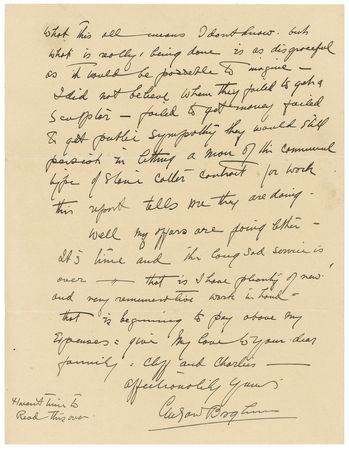 What this all means I dont know. but
what is really, being done is as disgraceful
as it would be possible to imagine —
I did not believe when they failed to get a
Sculptor — failed to get money failed
to get public sympathy they would still
persist in letting a man of the commercial
type of stone cutter contract for work
this report tells me they are doing.
Well my affairs are going better —
It's time and the long sad service is
over — that is I have plenty of new
and very remunerative work in hand —
that is beginning to pay above my
Expenses = give my love to your dear
family; and Charlie —
affectionately yours
Gutzon Borglum
Havent time to
Read this over